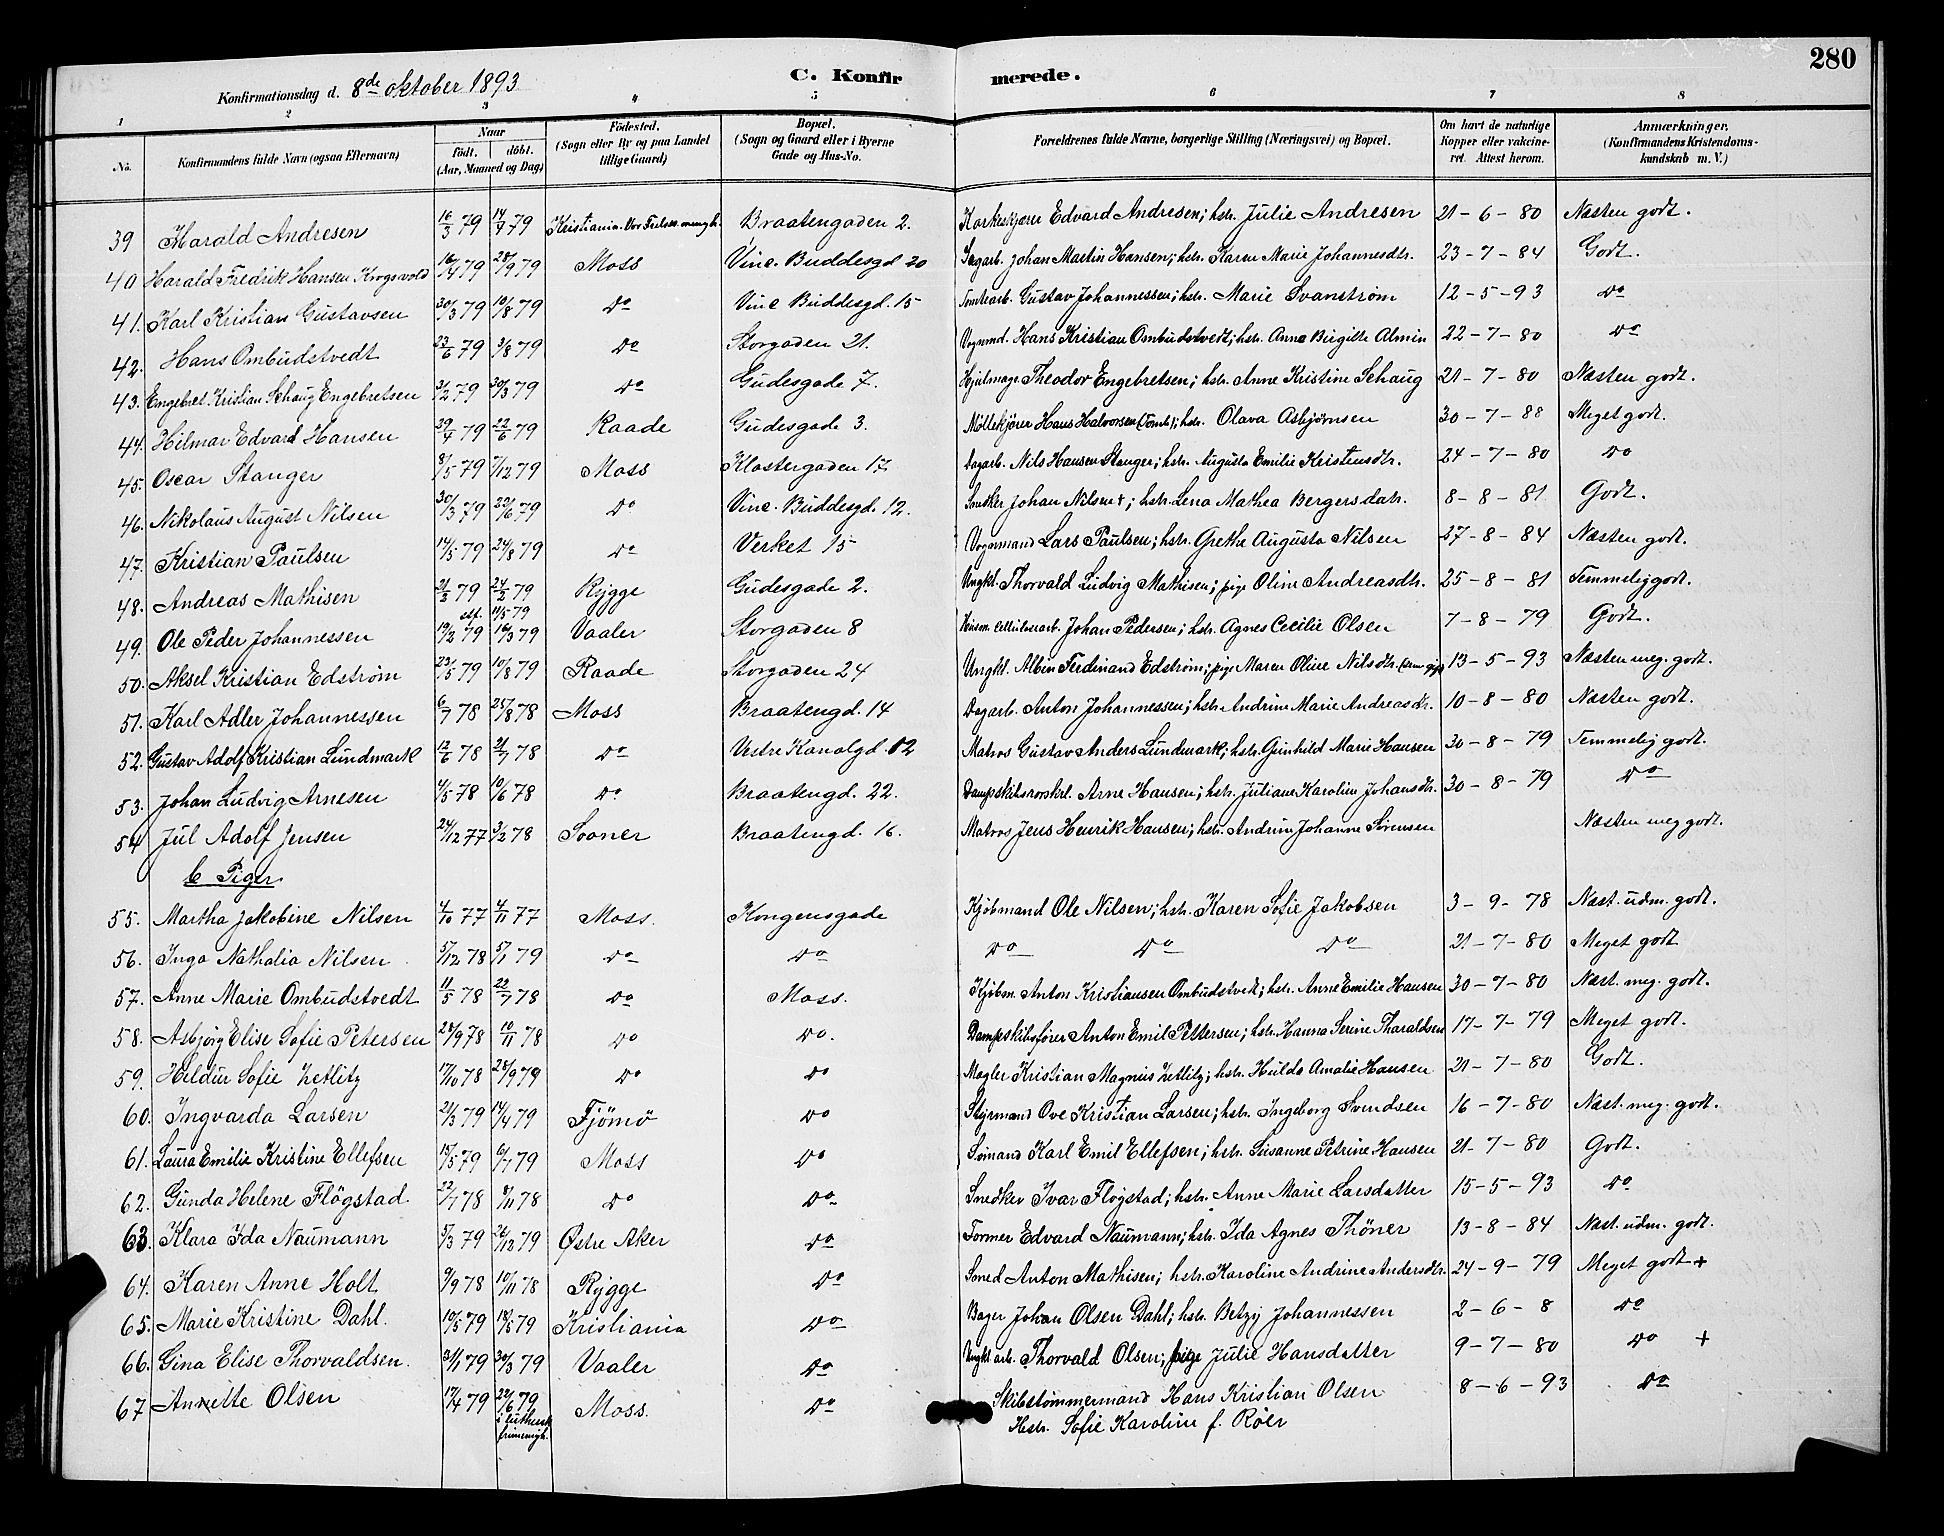 280
C. Konfirmerede.
Konfirmationsdag d. 8de oktober 1893
1 2 3 4 5 6 7 8
No. Konfirmandens fulde Navn (ogsaa Efternavn) Naar Födt. döbt. (Aar, Maaned og Dag) Födested. (Sogn eller By og paa Landet tillige Gaard) Bopæl. (Sogn og Gaard eller i Byerne Gade og Hus-No. Forældrenes fulde Navne, borgerlige Stilling (Næringsvei) og Bopæl. Om havt de naturlige Kopper eller vakcineret. Attest herom. Anmærkninger. (Konfirmandens Kristendomskundskab m. V.)
39 Harald Andresen 16/3 79 14/9 79 Kristiania. Vor Frelsers mengh. Braatengaden 2. Edvard Andresen; hstr. Julie Andresen 21-6-80 Næsten godt.
40 Harald Fredrik Hansen Krogsvold 16/4 79 28/9 79 Moss Vinc. Buddesgd 20 Sagarb. Johan Martin Hansen; hstr. Karen Marie Johannesdtr. 23-7-84 Godt.
41. Karl Kristian Gustavsen 30/3 79 10/8 79 Do Vinc Buddesgd. 15 Tomtearb. Gustav Johannessen; hstr. Marie Svanström 12-5-93 Do
42. Hans Ombudstvedt 23/6 79 3/8 79 Do Storgaden 21. Vognmd. Hans Kristian Ombudstvedt; hstr. Anne Birgitte Almin 22-7-80 Do
43. Engebret Kristian Schaug Engebretsen 3/2 79 30/3 79 Do Gudesgade 7. Hjulmagr. Theodor Engebretsen; hstr. Anne Kristine Schaug 21-7-80 Næsten godt.
44. Hilmar Edvard Hansen 29/4 79 22/6 79 Raade Gudesgade 3. Möllekjörer Hans Halvorsen (Tomb); hstr. Olava Asbjörnsen 30-7-88 Meget godt.
45. Oscar Stanger 8/5 79 7/12 79 Moss Klostergaden 17 Dagarb. Nils Hansen Stanger; hstr. Augusta Emilie Kristensdtr. 24-7-80 Do
46. Nikolaus August Nilsen 30/3 79 22/6 79 Do Vinc. Buddesgd. 12. Snedker Johan Nilsen †; hstr. Lena Mathea Bergersdatr. 8-8-81 Godt.
47. Kristian Paulsen 14/5 79 24/8 79 Do Verket 15 Vognmand Lars Paulsen; hstr. Grethe Augusta Nilsen 27-8-84 Næsten godt.
48. Andreas Mathisen 21/3 79 24/2 79 Rygge Gudesgade 2. Ungkl. Thorvald Ludvig Mathisen; pige Oline Andreasdtr. 25-8-81 Temmelig godt.
stf. 11/5 79
49. Ole Peder Johannessen 19/2 79 16/3 79 Vaaler Storgaden 8 Husm. Cellulosearb. Johan Pedersen; hstr. Agnes Cecilie Olsen 7-8-79 Godt.
50. Aksel Kristian Edström 23/5 79 10/8 79 Raade Storgaden 24 Ungkl. Albin Ferdinand Edström; pige Maren Oline Nilsdtr. 13-5-93 Næsten meg. godt.
51. Karl Adler Johannessen 6/7 78 25/8 78 Moss Braatengd. 14 Dagarb. Anton Johannessen; hstr. Andrine Marie Andreasdtr. 10-8-80 Næsten godt.
52. Gustav Adolf Kristian Lundmark 12/6 78 21/7 78 Do Vestre Kanalgd. 12 Matros Gustav Anders Lundmark; hstr. Gunhild Marie Hansen 30-8-79 Temmelig godt.
53. Johan Ludvig Arnesen 4/5 78 10/6 78 Do Braatengd. 22. Arne Hansen; hstr. Juliane Karoline Johansdtr. 30-8-79 Do
54 Jul Adolf Jensen 24/12 77 3/2 78 Sooner Braatengd. 16. Matros Jens Henrik Hansen; hstr. Andrine Johanne Sörensen Næsten meg godt.
b Piger
55. Martha Jakobine Nilsen 4/10 77 4/11 77 Moss. Kongensgade Kjöbmand Ole Nilsen; hstr. Karen Sofie Jakobsen 3-9-78 Næst. udm. godt.
56. Inga Nathalia Nilsen 5/12 78 5/1 79 Do Do Do Do Do 21-7-80 Meget godt
57. Anne Marie Ombudstvedt 11/5 78 22/7 78 Do Moss. Kjöbm. Anton Kristiansen Ombudstvedt; hstr. Anne Emilie Hansen 30-7-80 Næst. meg. godt.
58. Asbjörg Elise Sofie Petersen 24/9 78 10/11 78 Do Do. Dampskibsförer Anton Emil Pettersen; hstr. Hanna Serine Tharaldsen 17-7-79 Meget godt.
59. Hildur Sofie Zetlitz 17/10 78 28/9 79 Do Do Mægler Kristian Magnus Zetlitz; hstr. Hulda Amalie Hansen 21-7-80 Godt.
60. Ingvarda Larsen 21/3 79 14/4 79 Tjömö Do Styrmand Ove Kristian Larsen; hstr. Ingeborg Svendsen 16-7-80 Næst. meg. godt.
61. Laura Emilie Kristine Ellefsen 15/5 79 6/7 79 Moss Do Sömand Karl Emil Ellefsen; hstr. Susanne Petrine Hansen 21-7-80 Godt.
62. Gunda Helene Flögstad. 22/7 78 8/11 78 Do Do Snedker Ivar Flögstad; hstr. Anne Marie Larsdatter 15-5-93 Do
63. Klara Ida Naumann 5/3 79 26/12 79 Östre Aker Do Former Edvard Naumann; hstr. Ida Agnes Thöner 13-8-84 Næst. udm. godt.
64. Karen Anne Holt 9/9 78 10/11 78 Rygge Do Smed Anton Mathisen; hstr. Karoline Andrine Andersdtr. 24-9-79 Meget godt +
65. Marie Kristine Dahl. 10/5 79 18/5 79 Kristiania Do Bager Johan Olsen Dahl; hstr. Betzy Johannessen 2-6-8 Do
66. Gina Elise Thorvaldsen. 31/1 79 30/3 79 Vaaler Do Ungkl. arb. Thorvald Olsen; pige Julie Hansdatter 9-7-80 Do +
67 Annette Olsen 17/4 79 22/6 79 i luthersk frimenigh. Moss. Do Skibstömmermand Hans Kristian Olsen 8-6-93 Do
Hstr. Sofie Karoline f. Röer